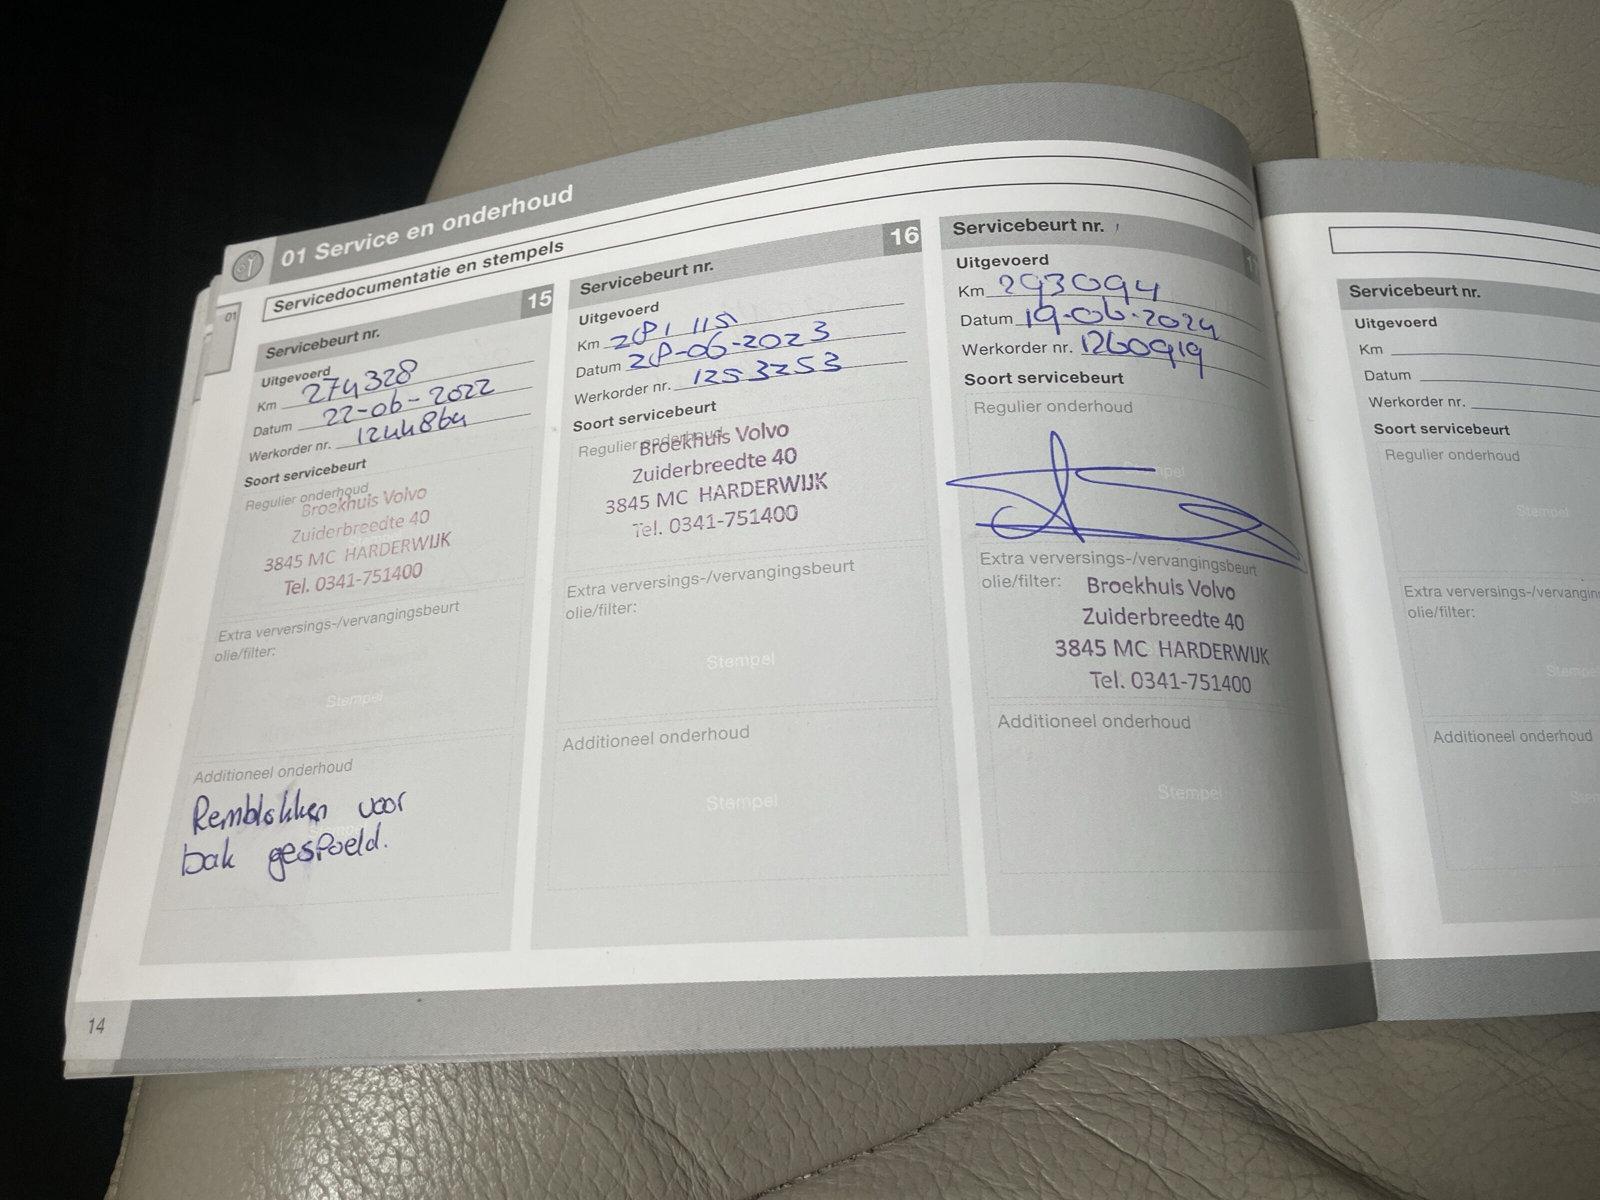 01 Service en onderhoud
Servicedocumentatie en stempels
01
Servicebeurt nr. 15
Uitgevoerd
Km 274328
Datum 22-06-2022
Werkorder nr. 1244864
Soort servicebeurt
Regulier onderhoud
Broekhuis Volvo
Zuiderbreedte 40
3845 MC HARDERWIJK
Tel. 0341-751400
Extra verversings-/vervangingsbeurt
olie/filter:
Stempel
Additioneel onderhoud
Remblokken voor
bak gespoeld.
Servicebeurt nr. 16
Uitgevoerd
Km 281 115
Datum 28-06-2023
Werkorder nr. 1253253
Soort servicebeurt
Regulier onderhoud
Broekhuis Volvo
Zuiderbreedte 40
3845 MC HARDERWIJK
Tel. 0341-751400
Extra verversings-/vervangingsbeurt
olie/filter:
Stempel
Additioneel onderhoud
Stempel
Servicebeurt nr.
Uitgevoerd
Km 293094
Datum 19-06-2024
Werkorder nr. 1260919
Soort servicebeurt
Regulier onderhoud
Stempel
Extra verversings-/vervangingsbeurt
olie/filter:
Broekhuis Volvo
Zuiderbreedte 40
3845 MC HARDERWIJK
Tel. 0341-751400
Additioneel onderhoud
Stempel
14
Servicebeurt nr.
Uitgevoerd
Km
Datum
Werkorder nr.
Soort servicebeurt
Regulier onderhoud
Stempel
Extra
olie/filter:
Additioneel onderhoud